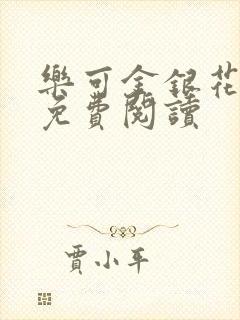 樂可金銀花
免費閱讀
賈小平